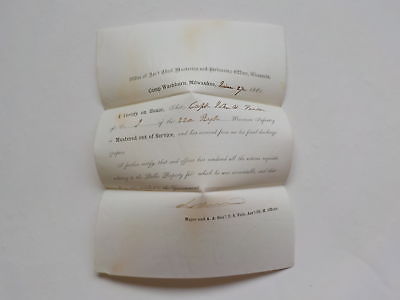 Office of Ass't Chief Mustering and Disbursing Officer, Wisconsin,
Camp Washburn, Milwaukee, June 186
I certify on Honor, That Capt.
of Co. of the 22d Regt. Wisconsin Infantry
is Mustered out of Service, and has received from me his final discharge
papers.
I further certify, that said officer has rendered all the returns requisite
relating to the Public Property for which he was accountable, and that
the Government.
Major and A. A. Gen'l U. S. Vols. Ass't Ch. M. Officer.